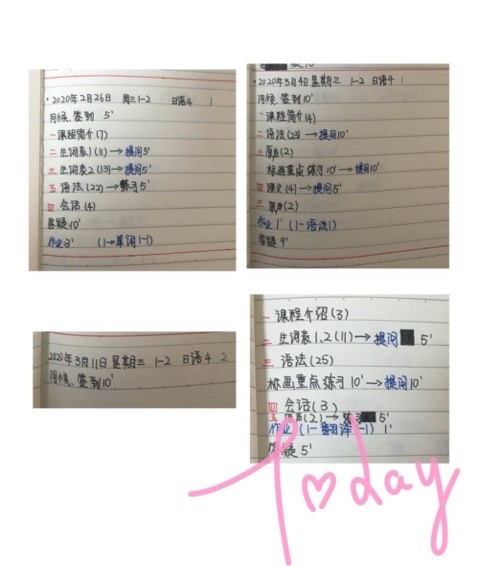 ·2020年2月26日 周三1-2 日语4 1
问候、签到 5'
一 课程简介(7)
二 生词表1(11)→提问5'
三 生词表2(13)→提问5'
五 语法(22)→练习5'
四 会话(4)
答疑10'
作业3' (1-单词1-1)
·2020年3月4日星期三 1-2 日语4 1
问候、签到10'
一 课程简介(4)
二 语法(23)→提问10'
三 原声(2)
标画重点 练习10'→提问10'
四 课文(4)→提问5'
三 原声(2)
作业1' (1-语法1)
答疑 9'
2020年3月11日星期三 1-2 日语4 2
问候、签到10'
一 课程介绍(3)
二 生词表1.2(11)→提问 5'
三 语法(25)
标画重点 练习10'→提问10'
四 会话(3)
五 原声(2)→练习 5'
作业 (1-翻译1-1) 1'
答疑 5'
Today